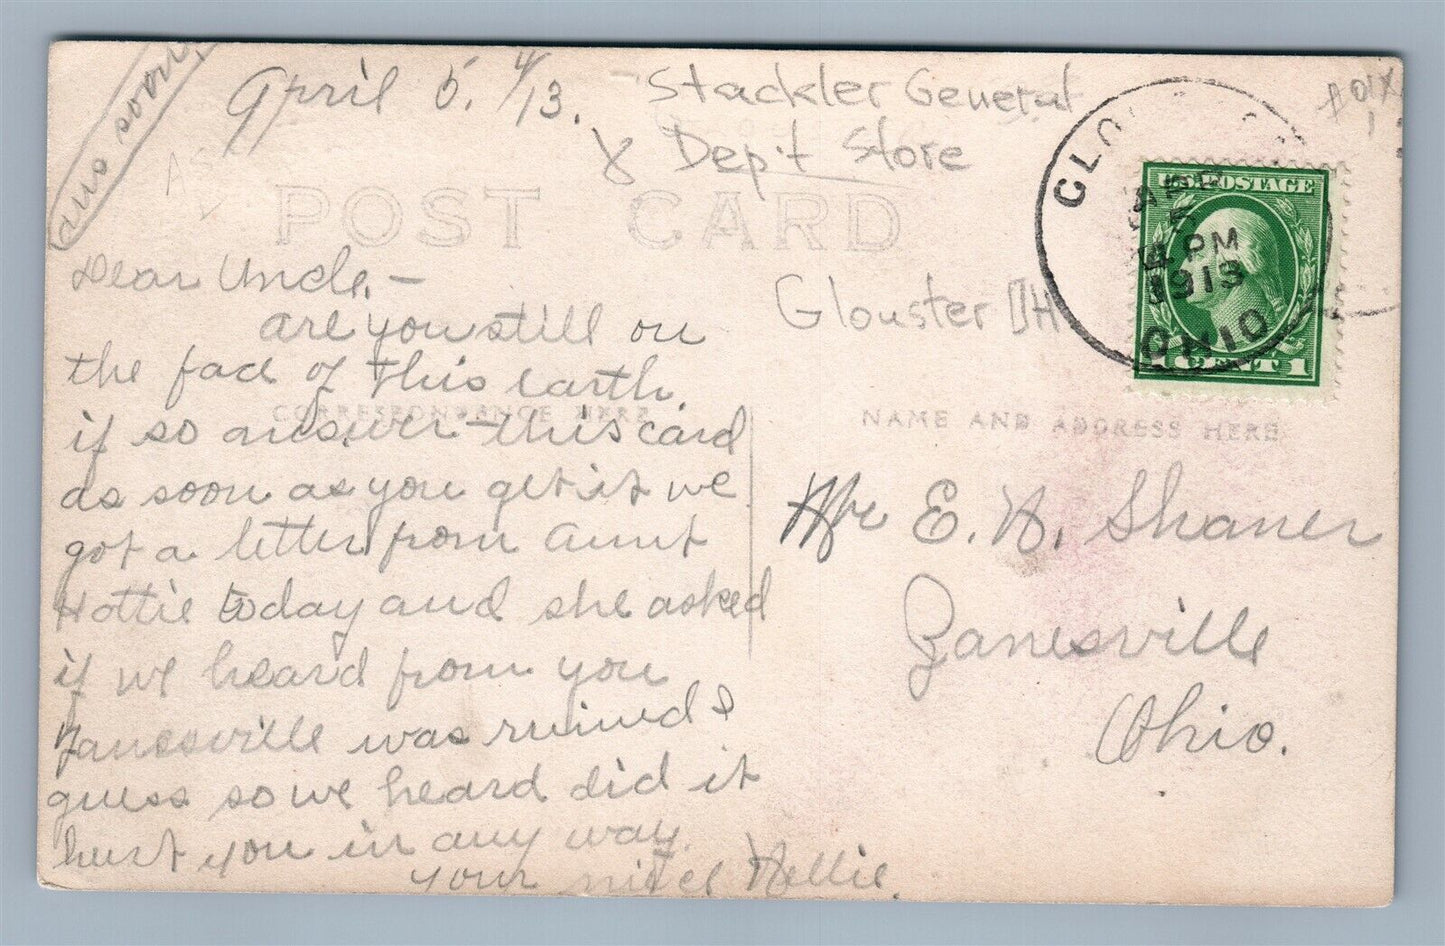 ans soon.
April 5. 4/13.
- Stackler General
& Dep't Store
POST CARD
GLO
APR
5
4 PM
1913
OHIO
U.S. POSTAGE
1 CENT 1
Glouster OH
Dear Uncle. -
are you still on
the face of this earth.
CORRESPONDENCE HERE
if so answer this card
as soon as you get it we
got a letter from Aunt
Hottie today and she asked
if we heard from you
Zanesville was ruined I
guess so we heard did it
hurt you in any way.
your niece Nellie.
NAME AND ADDRESS HERE
Mr E. N. Shaner
Zanesville
Ohio.